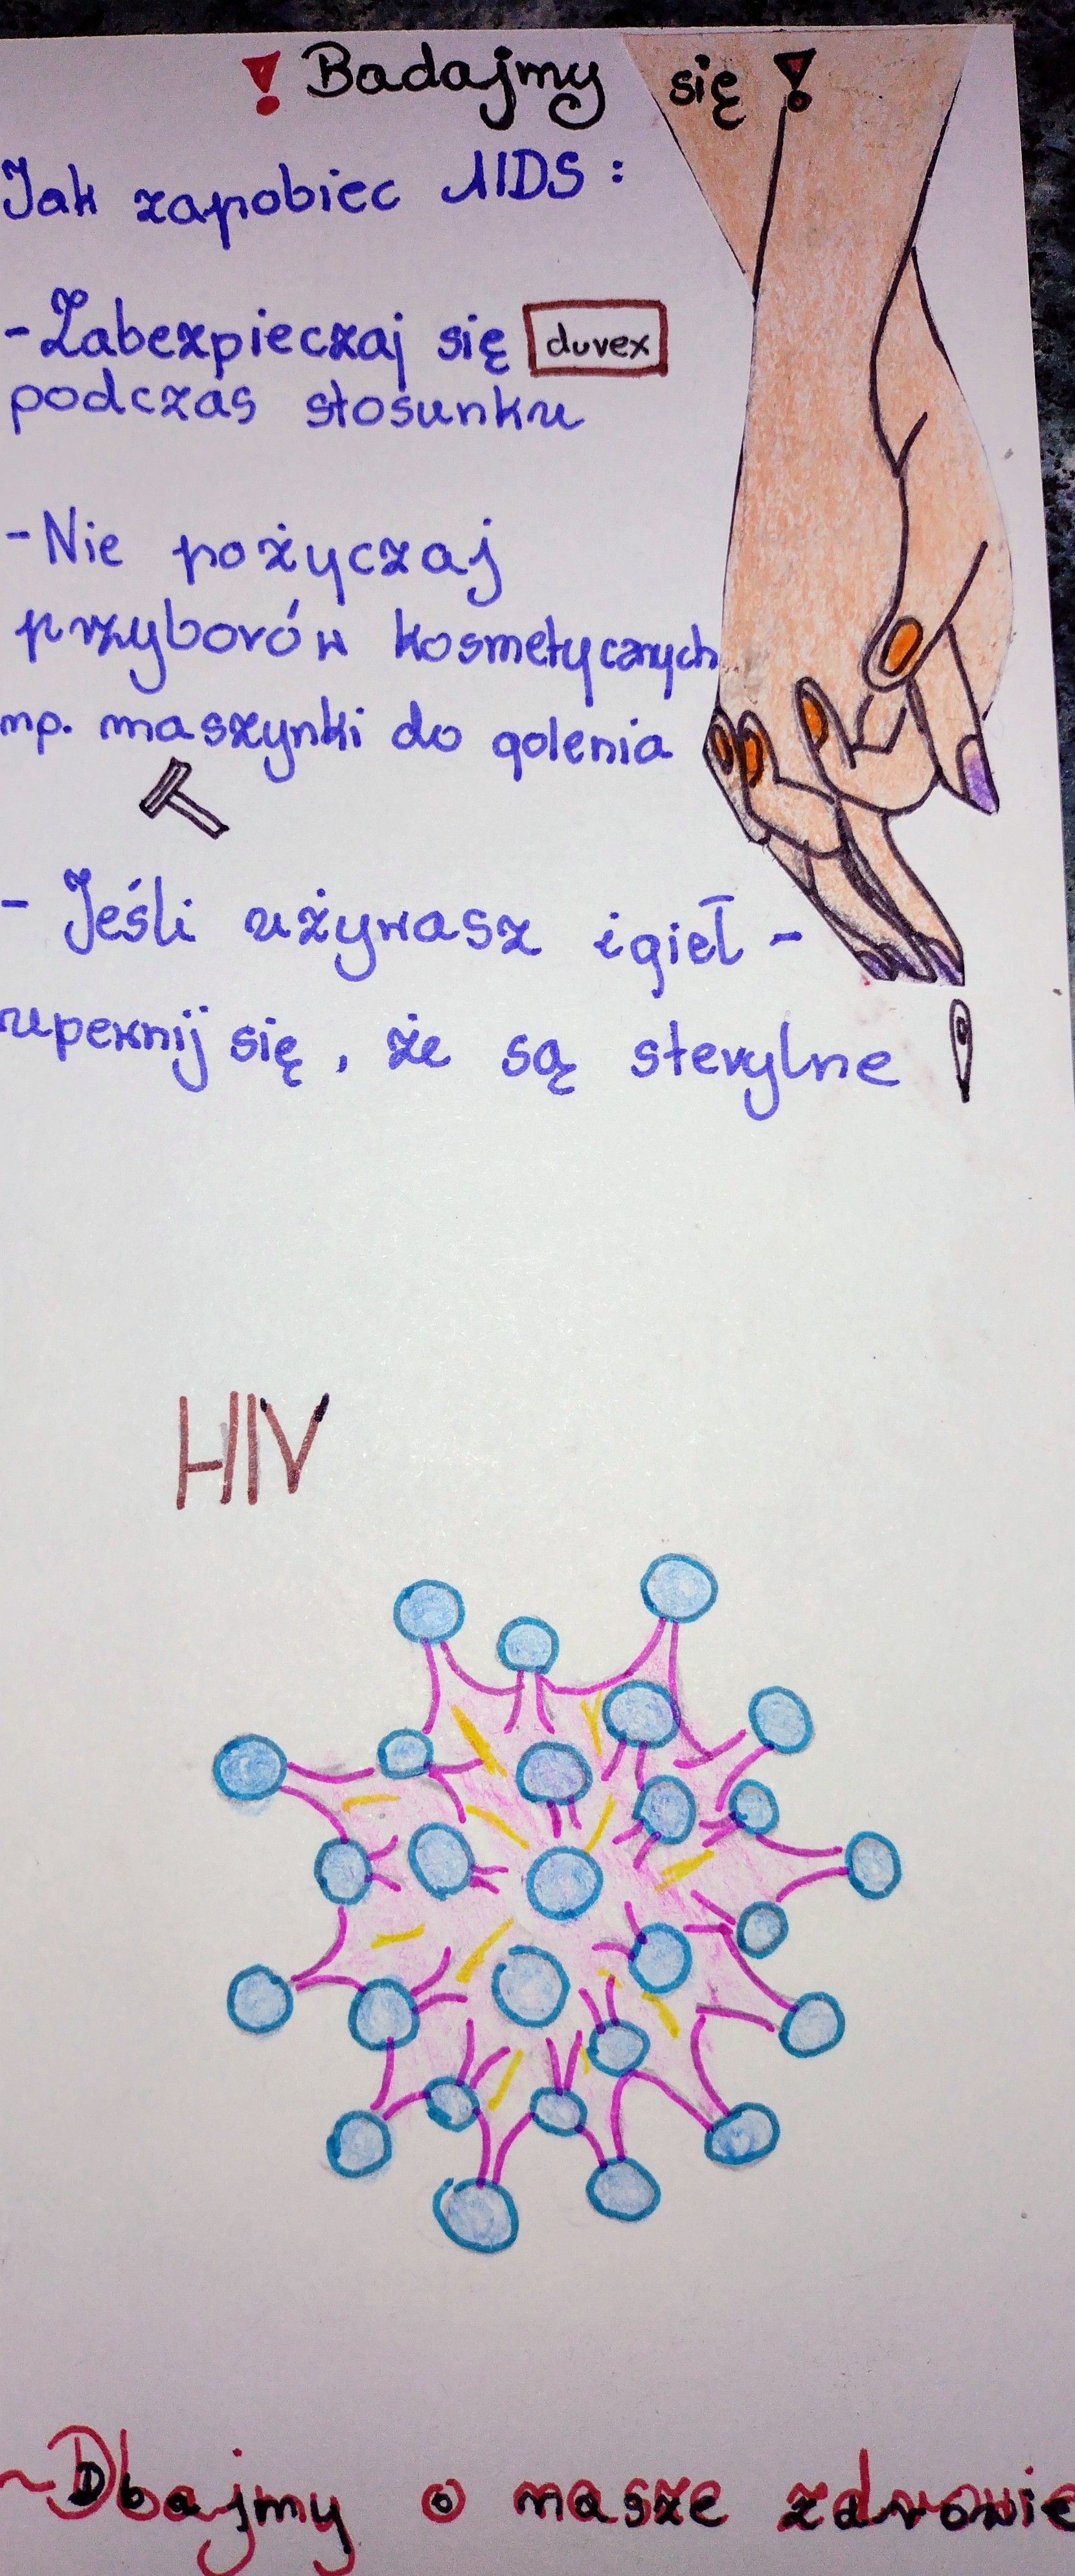 ! Badajmy się !
Jak zapobiec AIDS:
- Zabezpieczaj się durex
podczas stosunku
- Nie pożyczaj
przyborów kosmetycznych
np. maszynki do golenia
- Jeśli używasz igieł -
upewnij się, że są sterylne
HIV
~Dbajmy o nasze zdrowie